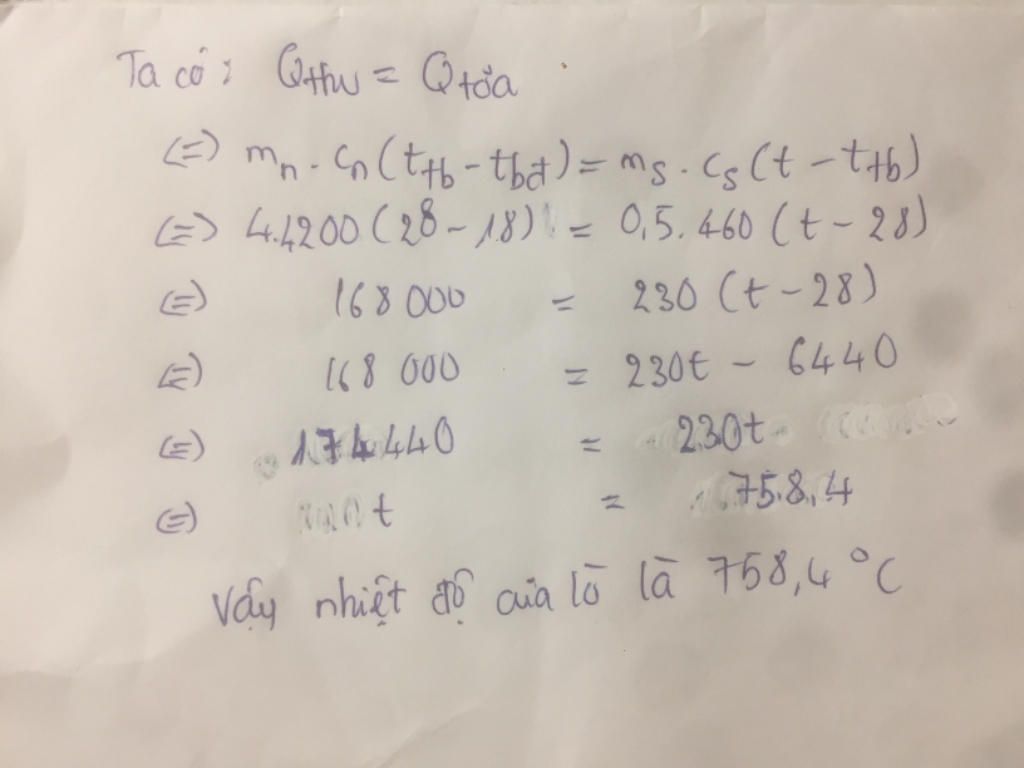 Ta có : Qthu = Qtỏa
(=) mn . cn (ttb - tbđ) = ms . cs (t - ttb)
(=) 4.4200 (28 - 18) = 0,5. 460 (t - 28)
(=) 168 000 = 230 (t - 28)
(=) 168 000 = 230t - 6440
(=) 174440 = 230t
(=) t = 758,4
Vậy nhiệt độ của lò là 758,4 °C